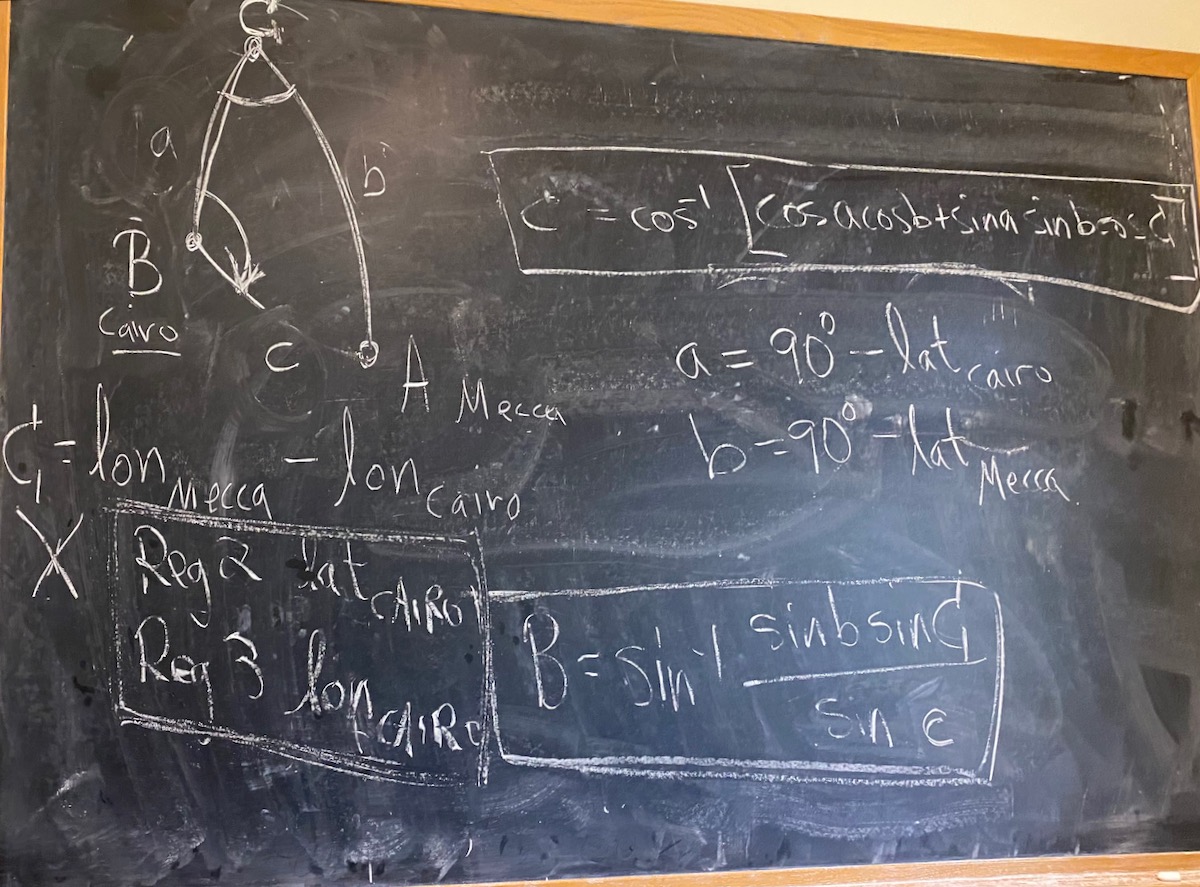 C
a
b
B
Cairo
c
A Mecca
c = cos⁻¹ [cos a cos b + sin a sin b cos C]
a = 90° - lat cairo
b = 90° - lat Mecca
C = lon Mecca - lon cairo
X
Reg 2 lat CAIRO
Reg 3 lon CAIRO
B = sin⁻¹ sin b sin C
sin c